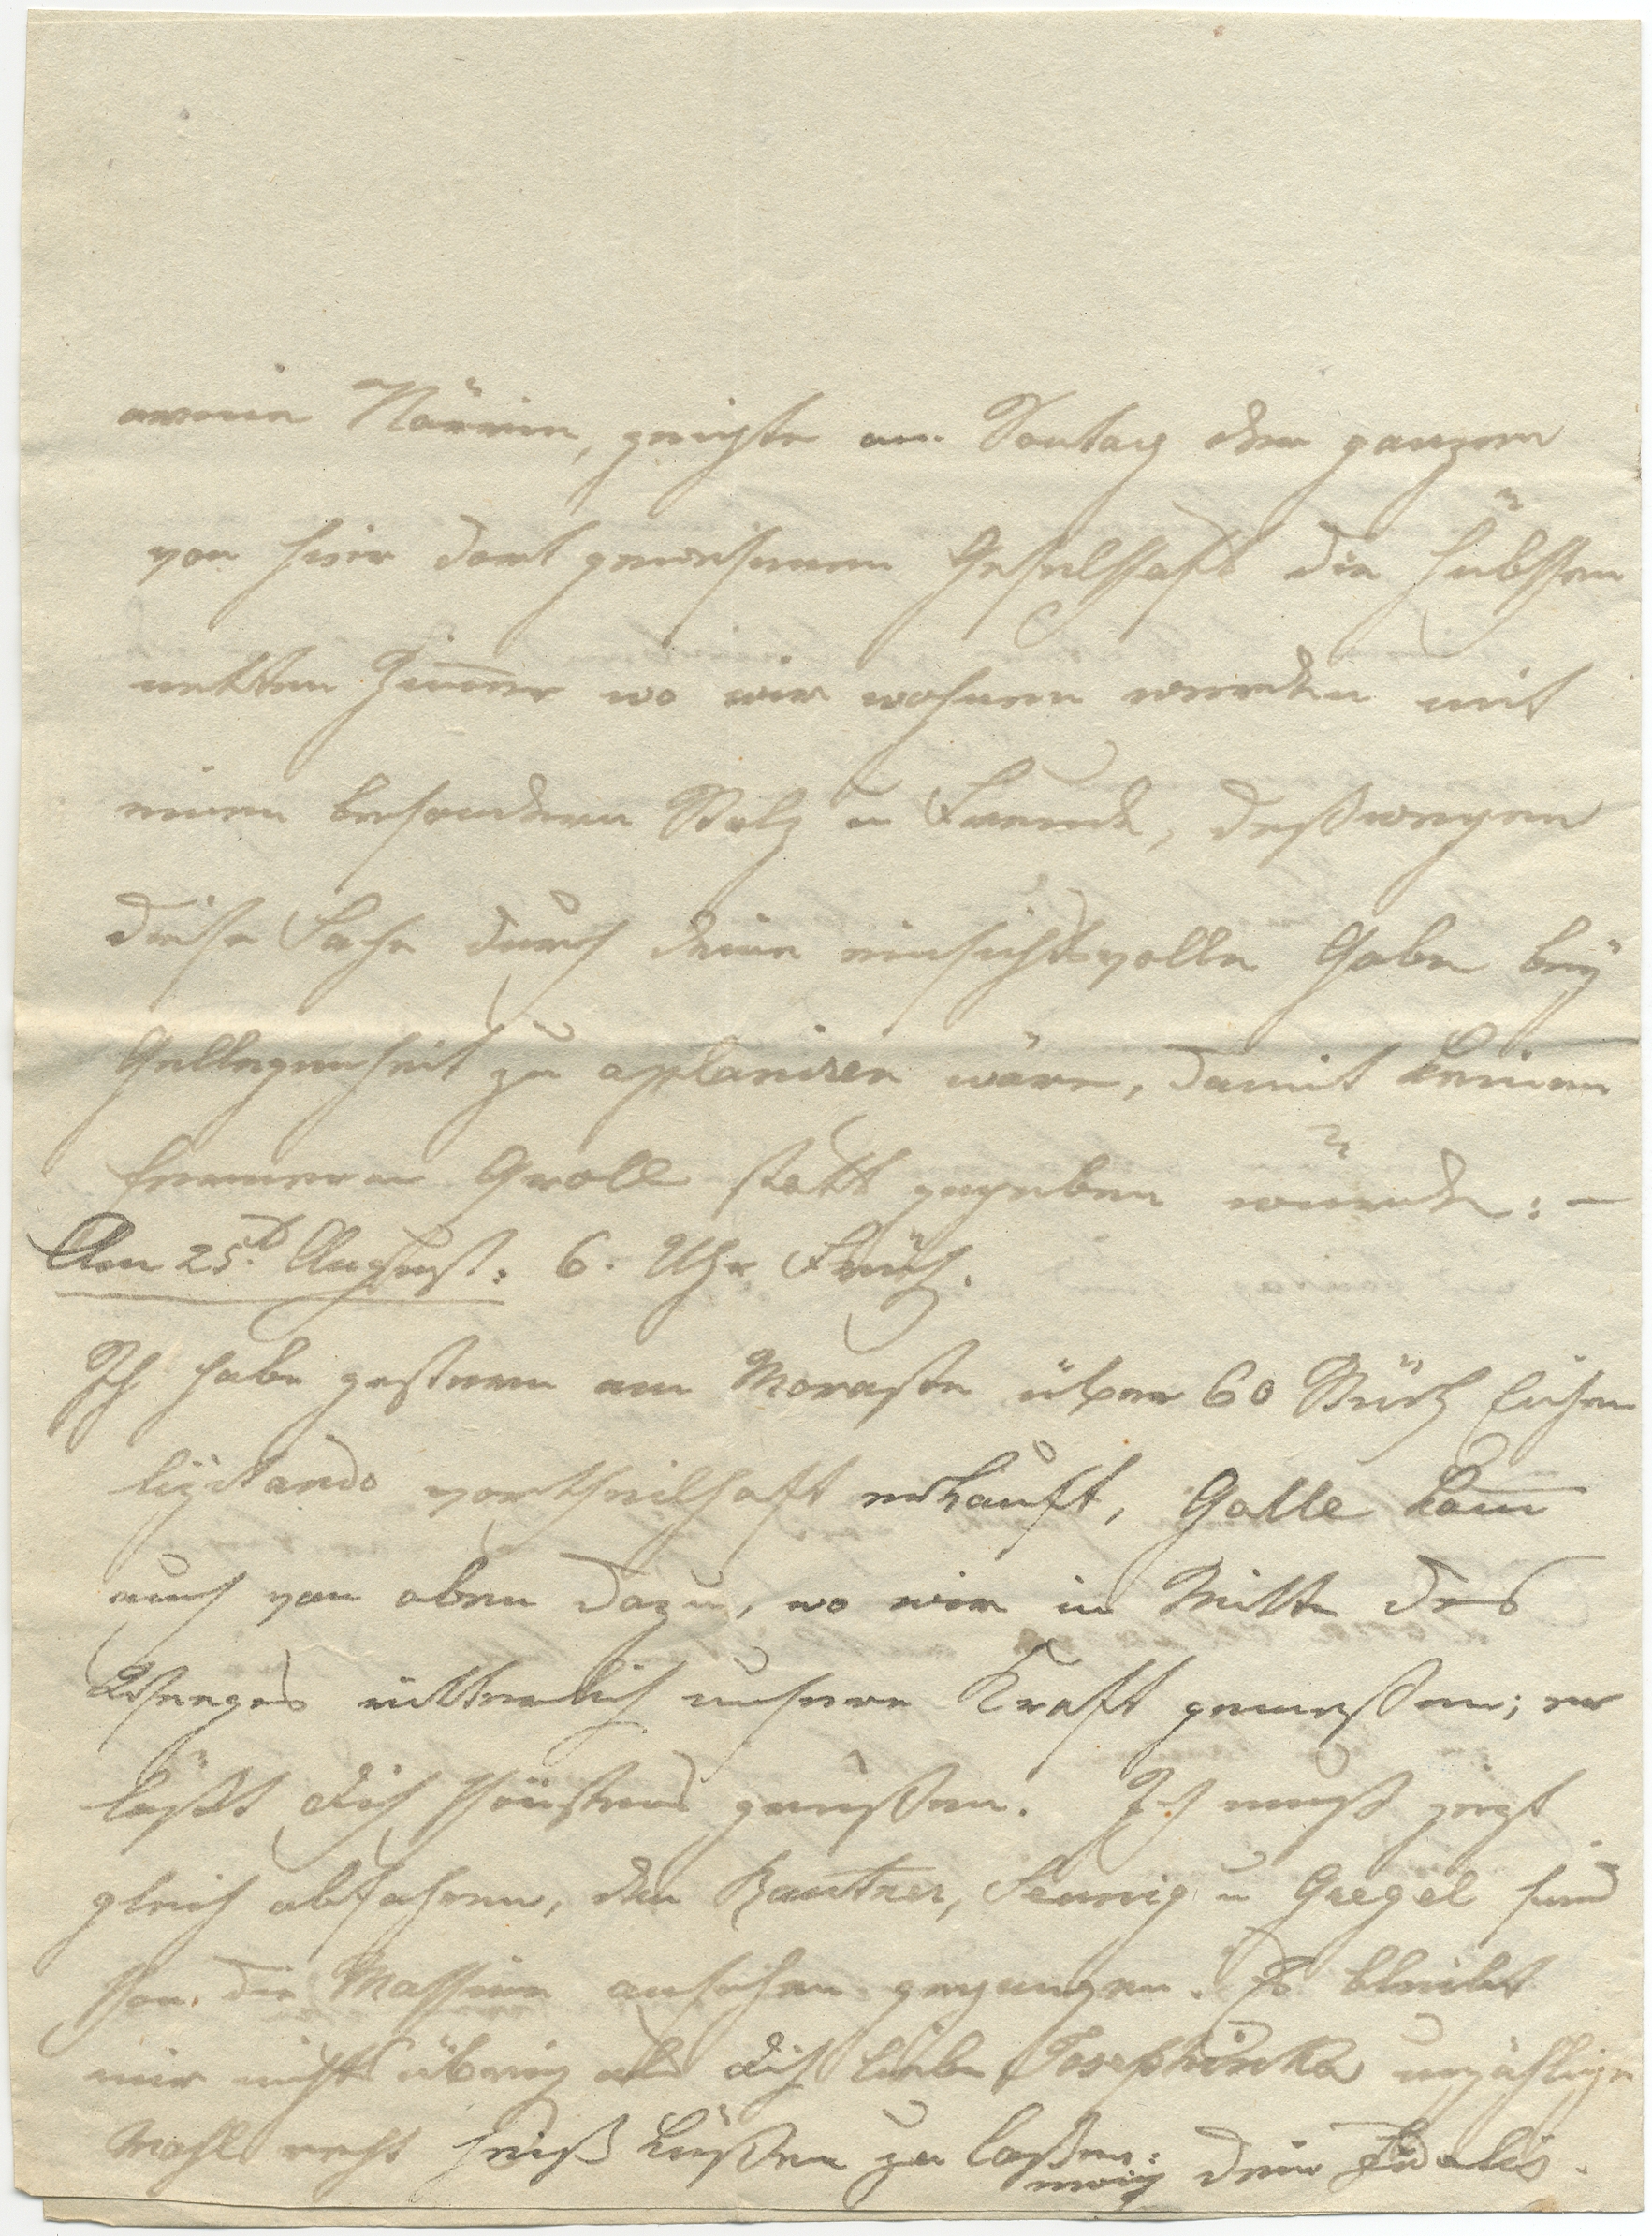 arme Närrin, zeigte am Sontag der ganzen
von hier dort gewesenen Gesellschaft die hübschen
netten Zimmer wo wir wohnen werden mit
einen besondern Stolz u Freude, deßwegen
diese Sache durch deine einsichtsvolle Gabe beÿ
Gellegenheit zu aplaniren wäre, damit keinen
ferneren Groll statt gegeben würde: –
Am 25t. August: 6. Uhr Früh.
Ich habe gestern am Moraste über 60 Stück Eichen
lizitando vortheilhaft erkauft, Galle kam̄
auch von oben dazu, wo wir in Mitte des
Weeges ritterlich unsere Kraft gemeßen; er
laßt dich schönstens grüßen. Ich muß jezt
gleich abfahren, den Kautner, Seunig u Gregel sind
schon die Massien ansehen gegangen. Es bleibt
mir nichts übrig als dich liebe Josephinka unzählige
Mahl recht heiß küßen zu laßen:
ewig dein Fidelis.